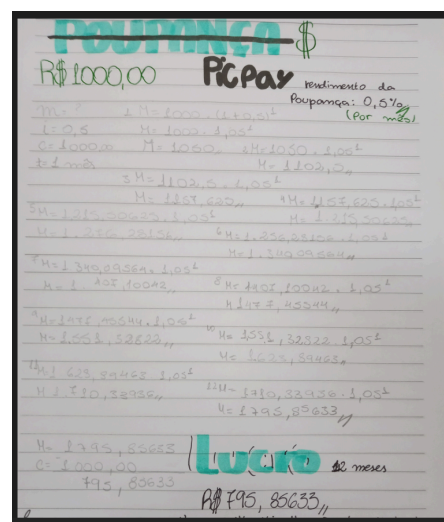 POUPANÇA $
R$ 1000,00 PicPay rendimento da
Poupança: 0,5%
(Por mês)
M= ? 1 M= 1000 . (1+0,5)¹
i= 0,5 M= 1000 . 1,05¹
C= 1000,00 M= 1050 2 M= 1050 . 1,05¹
t= 1 mês M= 1102,5
3 M= 1102,5 . 1,05¹
M= 1157,625 4 M= 1157,625 . 1,05¹
M= 1.215,50625
5 M= 1.215,50625 . 1,05¹
M= 1.276,28156 6 M= 1.276,28156 . 1,05¹
M= 1.340,09564
7 M= 1340,09564 . 1,05¹
M= 1.407,10042 8 M= 1407,10042 . 1,05¹
M 1477,45544
9 M= 1477,45544 . 1,05¹
M= 1.551,32822 10 M= 1551,32822 . 1,05¹
M= 1628,89463
11 M 1628,89463 . 1,05¹
M 1710,33936 12 M= 1710,33936 . 1,05¹
M= 1795,85633
M= 1795,85633
C= 1000,00
795,85633
Lucro 12 meses
R$ 795,85633